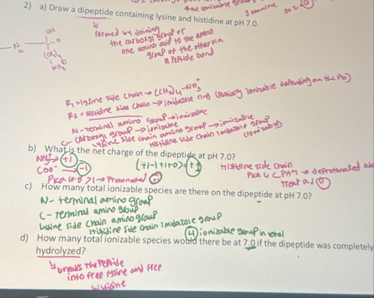 the ionizable groups
2) a) Draw a dipeptide containing lysine and histidine at pH 7.0.
formed by joining
the carboxyl group of
one amino acid to the amino
group of the other via
a Peptide bond
R₁ = lysine side chain → (CH₂)₄-NH₃⁺
R₂ = histidine side chain → imidazole ring (partially ionizable depending on the PH)
N-terminal amino group → ionizable
C- carboxyl group → ionizable
lysine side chain amino group → ionizable
Histidine side chain imidazole group
b) What is the net charge of the dipeptide at pH 7.0?
NH₃⁺ (+1)
COO⁻ (-1)
(+1-1+1+0) = +1
Histidine side chain
PKa 6 < PH 7 → deprotonated
PKa 10.5 > 1 → Protonated
c) How many total ionizable species are there on the dipeptide at pH 7.0?
N- terminal amino group
C- terminal amino group
Lysine side chain amino group
Histidine side chain imidazole group
4 ionizable group in total
d) How many total ionizable species would there be at 7.0 if the dipeptide was completely
hydrolyzed?
breaks the Peptide
into free lysine and free